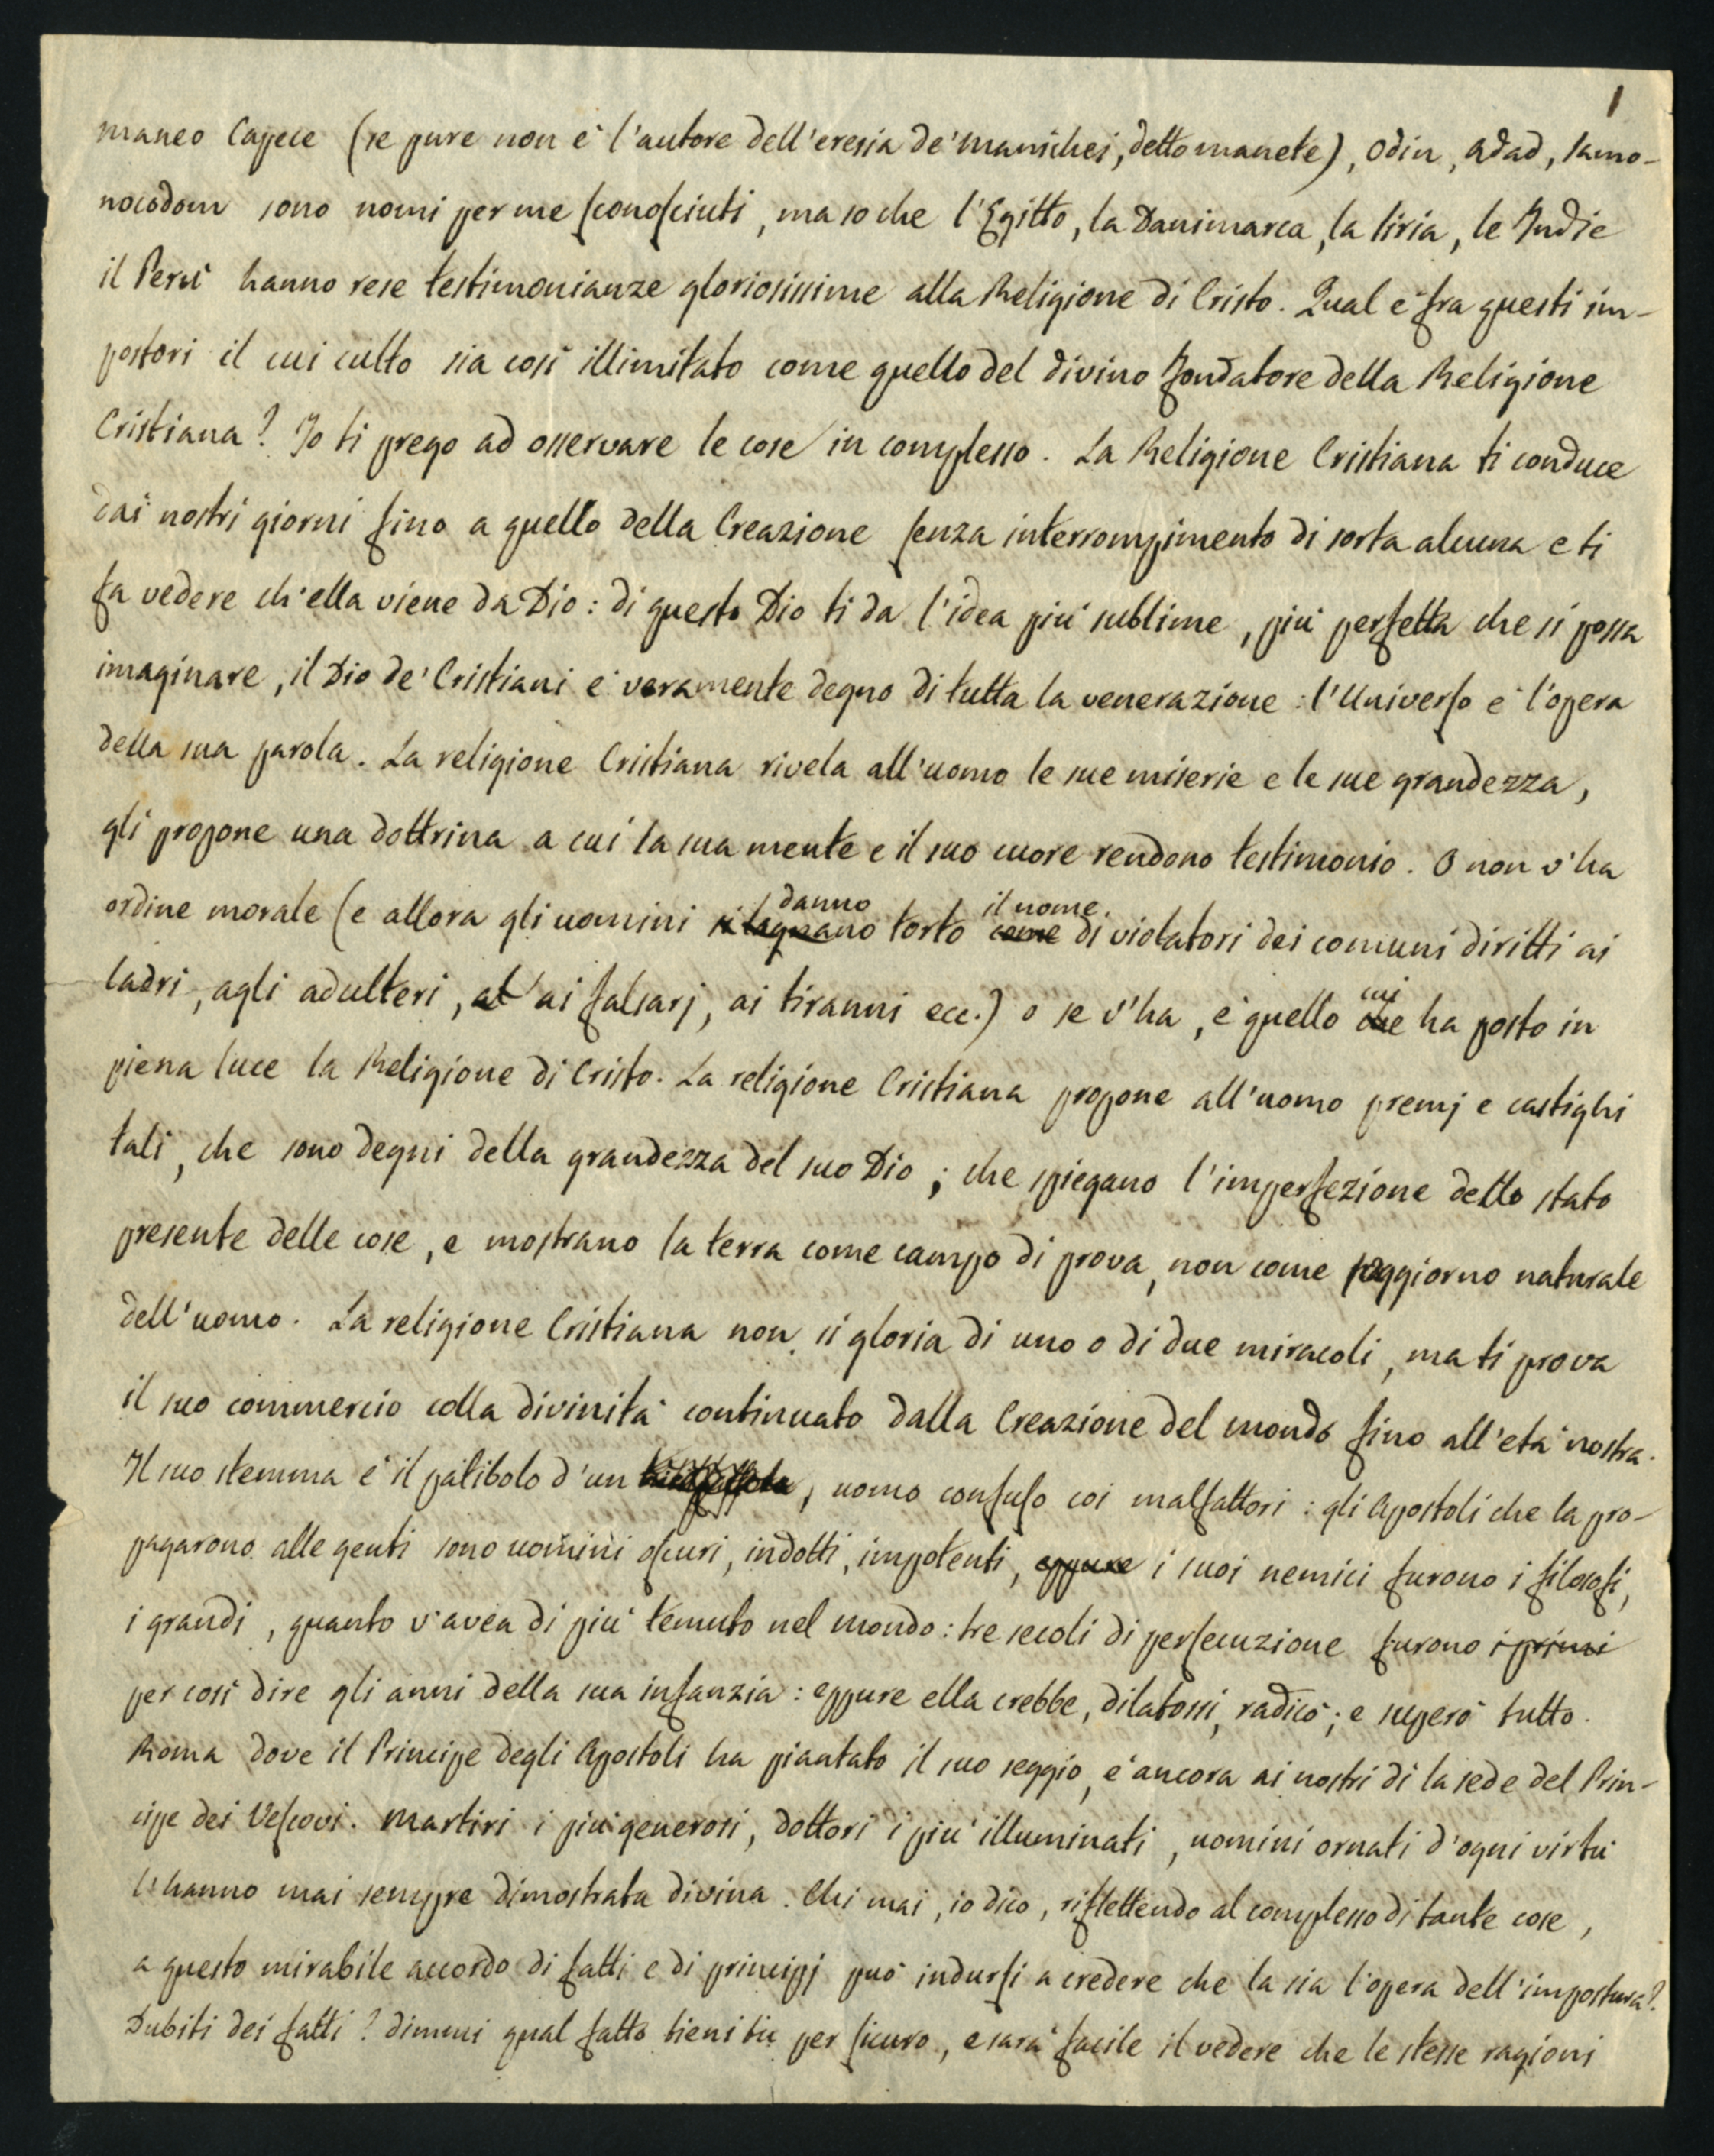 1
Maneo Capece (se pure non è l'autore dell'eresia de' Manichei, detto manete), Odin, Adad, Samo-
nocodom sono nomi per me sconosciuti, ma so che l'Egitto, la Danimarca, la Siria, le Indie
il Perù hanno rese testimonianze gloriosissime alla Religione di Cristo. Qual è fra questi im-
postori il cui culto sia così illimitato come quello del divino fondatore della Religione
Cristiana? Io ti prego ad osservare le cose in complesso. La Religione Cristiana ti conduce
dai nostri giorni fino a quello della Creazione senza interrompimento di sorta alcuna e ti
fa vedere ch'ella viene da Dio: di questo Dio ti da l'idea più sublime, più perfetta che si possa
imaginare, il Dio de' Cristiani è veramente degno di tutta la venerazione: l'Universo è l'opera
della sua parola. La religione Cristiana rivela all'uomo le sue miserie e le sue grandezza,
gli propone una dottrina a cui la sua mente e il suo cuore rendono testimonio. O non v'ha
danno il nome
ordine morale (e allora gli uomini si lagnano torto come di violatori dei comuni diritti ai
cui
ladri, agli adulteri, al ai falsarj, ai tiranni ecc.) o se v'ha, è quello che ha posto in
piena luce la Religione di Cristo. La religione Cristiana propone all'uomo premj e castighi
tali, che sono degni della grandezza del suo Dio; che spiegano l'imperfezione dello stato
presente delle cose, e mostrano la terra come campo di prova, non come soggiorno naturale
dell'uomo. La religione Cristiana non si gloria di uno o di due miracoli, ma ti prova
il suo commercio colla divinità continuato dalla Creazione del mondo fino all'età nostra.
Il suo stemma è il patibolo d'un , uomo confuso coi malfattori: gli Apostoli che la pro-
pagarono alle genti sono uomini oscuri, indotti, impotenti, eppure i suoi nemici furono i filosofi,
i grandi, quanto v'avea di più temuto nel mondo: tre secoli di persecuzione furono i primi
per così dire gli anni della sua infanzia: eppure ella crebbe, dilatossi, radicò; e superò tutto.
Roma dove il Principe degli Apostoli ha piantato il suo seggio, è ancora ai nostri dì la sede del Prin-
cipe dei Vescovi. Martiri i più generosi, dottori i più illuminati, uomini ornati d'ogni virtù
l'hanno mai sempre dimostrata divina. Chi mai, io dico, riflettendo al complesso di tante cose,
a questo mirabile accordo di fatti e di principj può indursi a credere che la sia l'opera dell'impostura?
Dubiti dei fatti? dimmi qual fatto tieni tu per sicuro, e sarà facile il vedere che le stesse ragioni